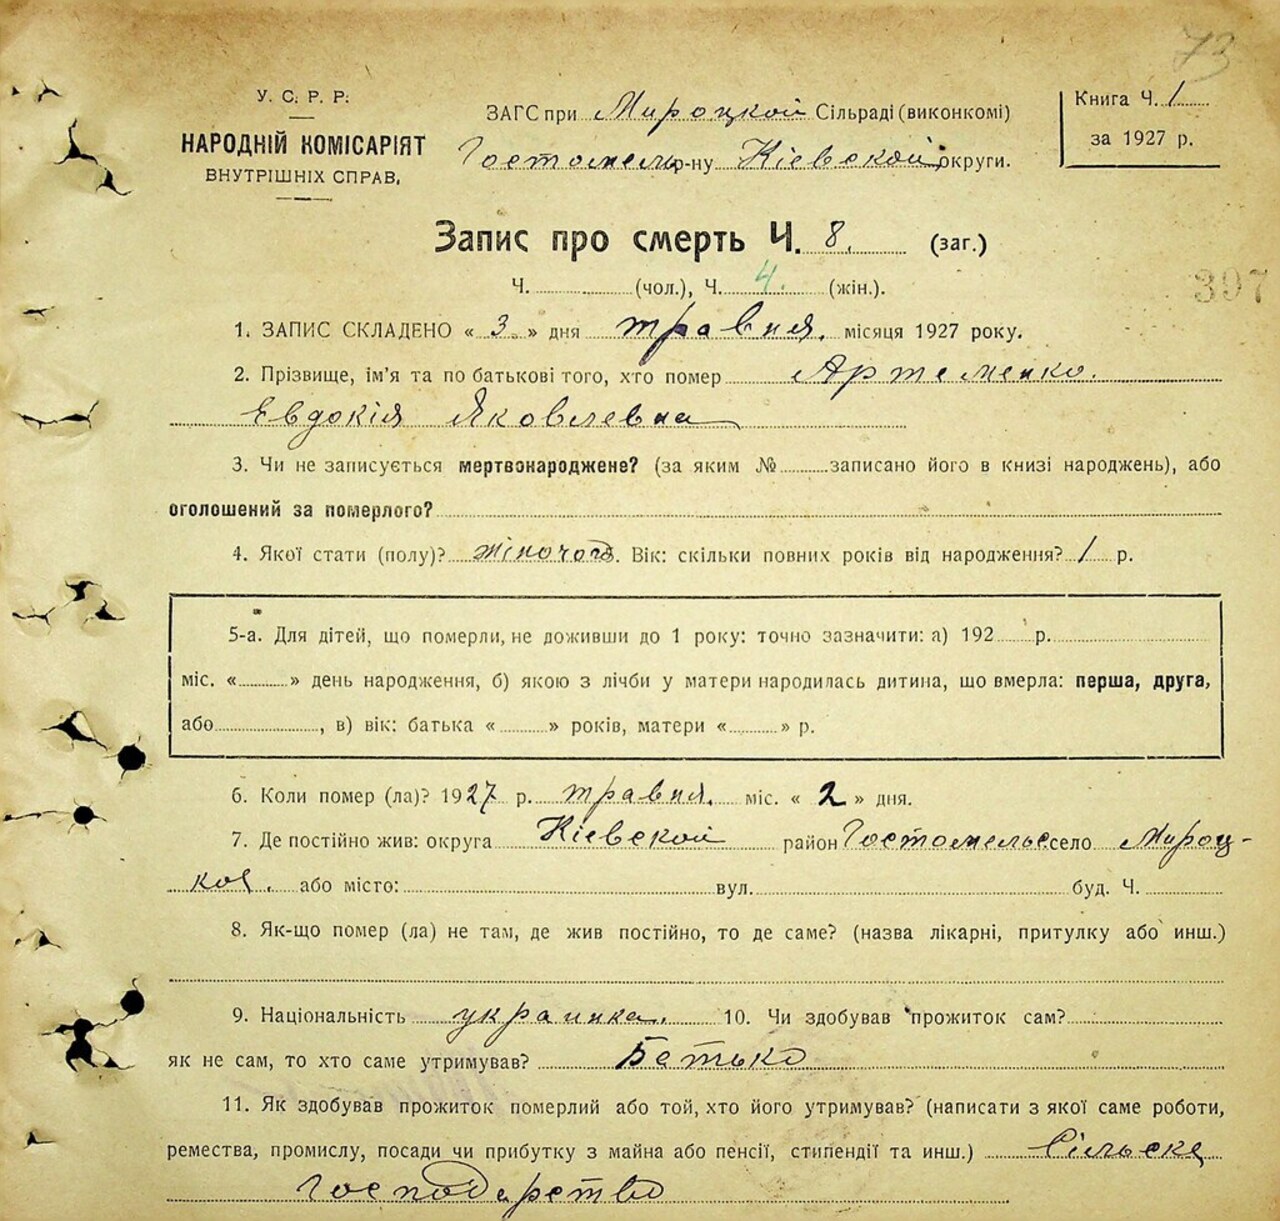 73
У. С. Р. Р.
НАРОДНІЙ КОМІСАРІЯТ
ВНУТРІШНІХ СПРАВ,
ЗАГС при Мироцкой Сільраді (виконкомі)
Гостомель р-ну Кіевской округи.
Книга Ч. 1
за 1927 р.
Запис про смерть Ч. 8. (заг.)
Ч. (чол.), Ч. 4. (жін.).
397
1. ЗАПИС СКЛАДЕНО « 3 » дня травня. місяця 1927 року.
2. Прізвище, ім'я та по батькові того, хто помер Артеменко.
Евдокія Яковлевна
3. Чи не записується мертвонароджене? (за яким № записано його в книзі народжень), або
оголошений за померлого?
4. Якої стати (полу)? жіночого. Вік: скільки повних років від народження? 1 р.
5-а. Для дітей, що померли, не доживши до 1 року: точно зазначити: а) 192 р.
міс. « » день народження, б) якою з лічби у матери народилась дитина, що вмерла: перша, друга,
або , в) вік: батька « » років, матери « » р.
6. Коли помер (ла)? 1927 р. травня. міс. « 2 » дня.
7. Де постійно жив: округа Кіевской район Гостомельс село Мироц-
кая. або місто: вул. буд. Ч.
8. Як-що помер (ла) не там, де жив постійно, то де саме? (назва лікарні, притулку або инш.)
9. Національність украинка. 10. Чи здобував прожиток сам?
як не сам, то хто саме утримував? Батько
11. Як здобував прожиток померлий або той, хто його утримував? (написати з якої саме роботи,
ремества, промислу, посади чи прибутку з майна або пенсії, стипендії та инш.) Сільське
Господарство